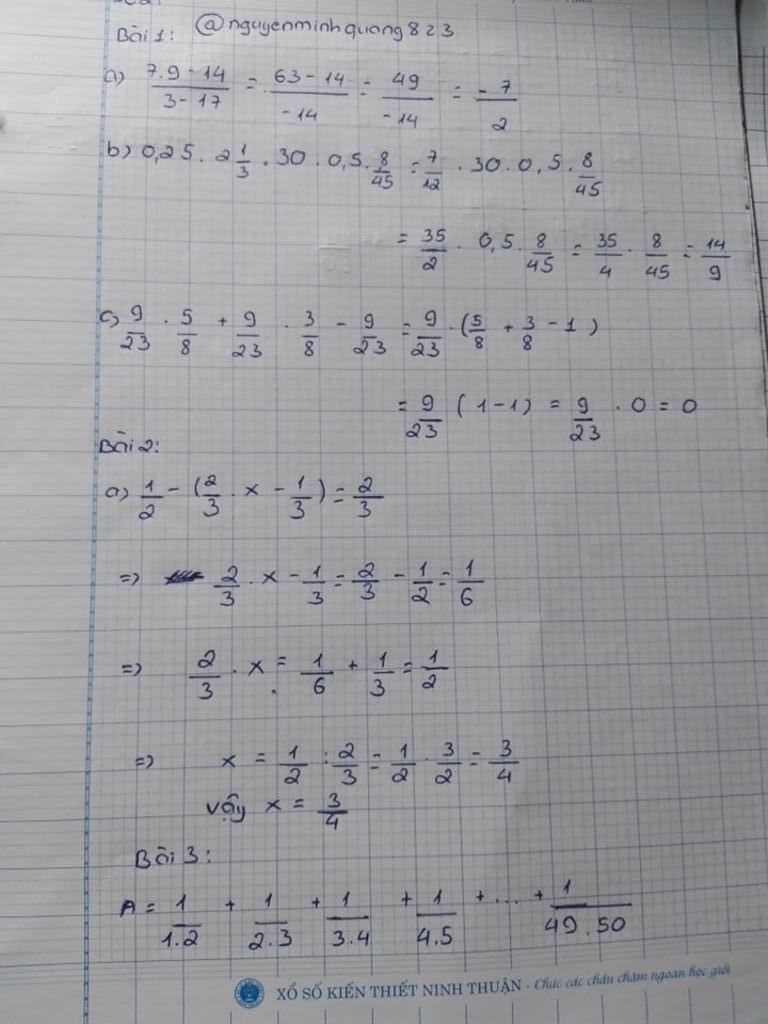 Bài 1: @nguyenminhquang823
a) \frac{7.9-14}{3-17} = \frac{63-14}{-14} = \frac{49}{-14} = \frac{-7}{2}
b) 0,25 . 2\frac{1}{3} . 30 . 0,5 . \frac{8}{45} = \frac{7}{12} . 30 . 0,5 . \frac{8}{45}
= \frac{35}{2} . 0,5 . \frac{8}{45} = \frac{35}{4} . \frac{8}{45} = \frac{14}{9}
c) \frac{9}{23} . \frac{5}{8} + \frac{9}{23} . \frac{3}{8} - \frac{9}{23} = \frac{9}{23} . (\frac{5}{8} + \frac{3}{8} - 1)
= \frac{9}{23} (1-1) = \frac{9}{23} . 0 = 0
Bài 2:
a) \frac{1}{2} - (\frac{2}{3} . x - \frac{1}{3}) = \frac{2}{3}
=> \frac{2}{3} . x - \frac{1}{3} = \frac{2}{3} - \frac{1}{2} = \frac{1}{6}
=> \frac{2}{3} . x = \frac{1}{6} + \frac{1}{3} = \frac{1}{2}
=> x = \frac{1}{2} : \frac{2}{3} = \frac{1}{2} . \frac{3}{2} = \frac{3}{4}
vậy x = \frac{3}{4}
Bài 3:
A = \frac{1}{1.2} + \frac{1}{2.3} + \frac{1}{3.4} + \frac{1}{4.5} + ... + \frac{1}{49.50}
XỔ SỐ KIẾN THIẾT NINH THUẬN - Chúc các cháu chăm ngoan học giỏi